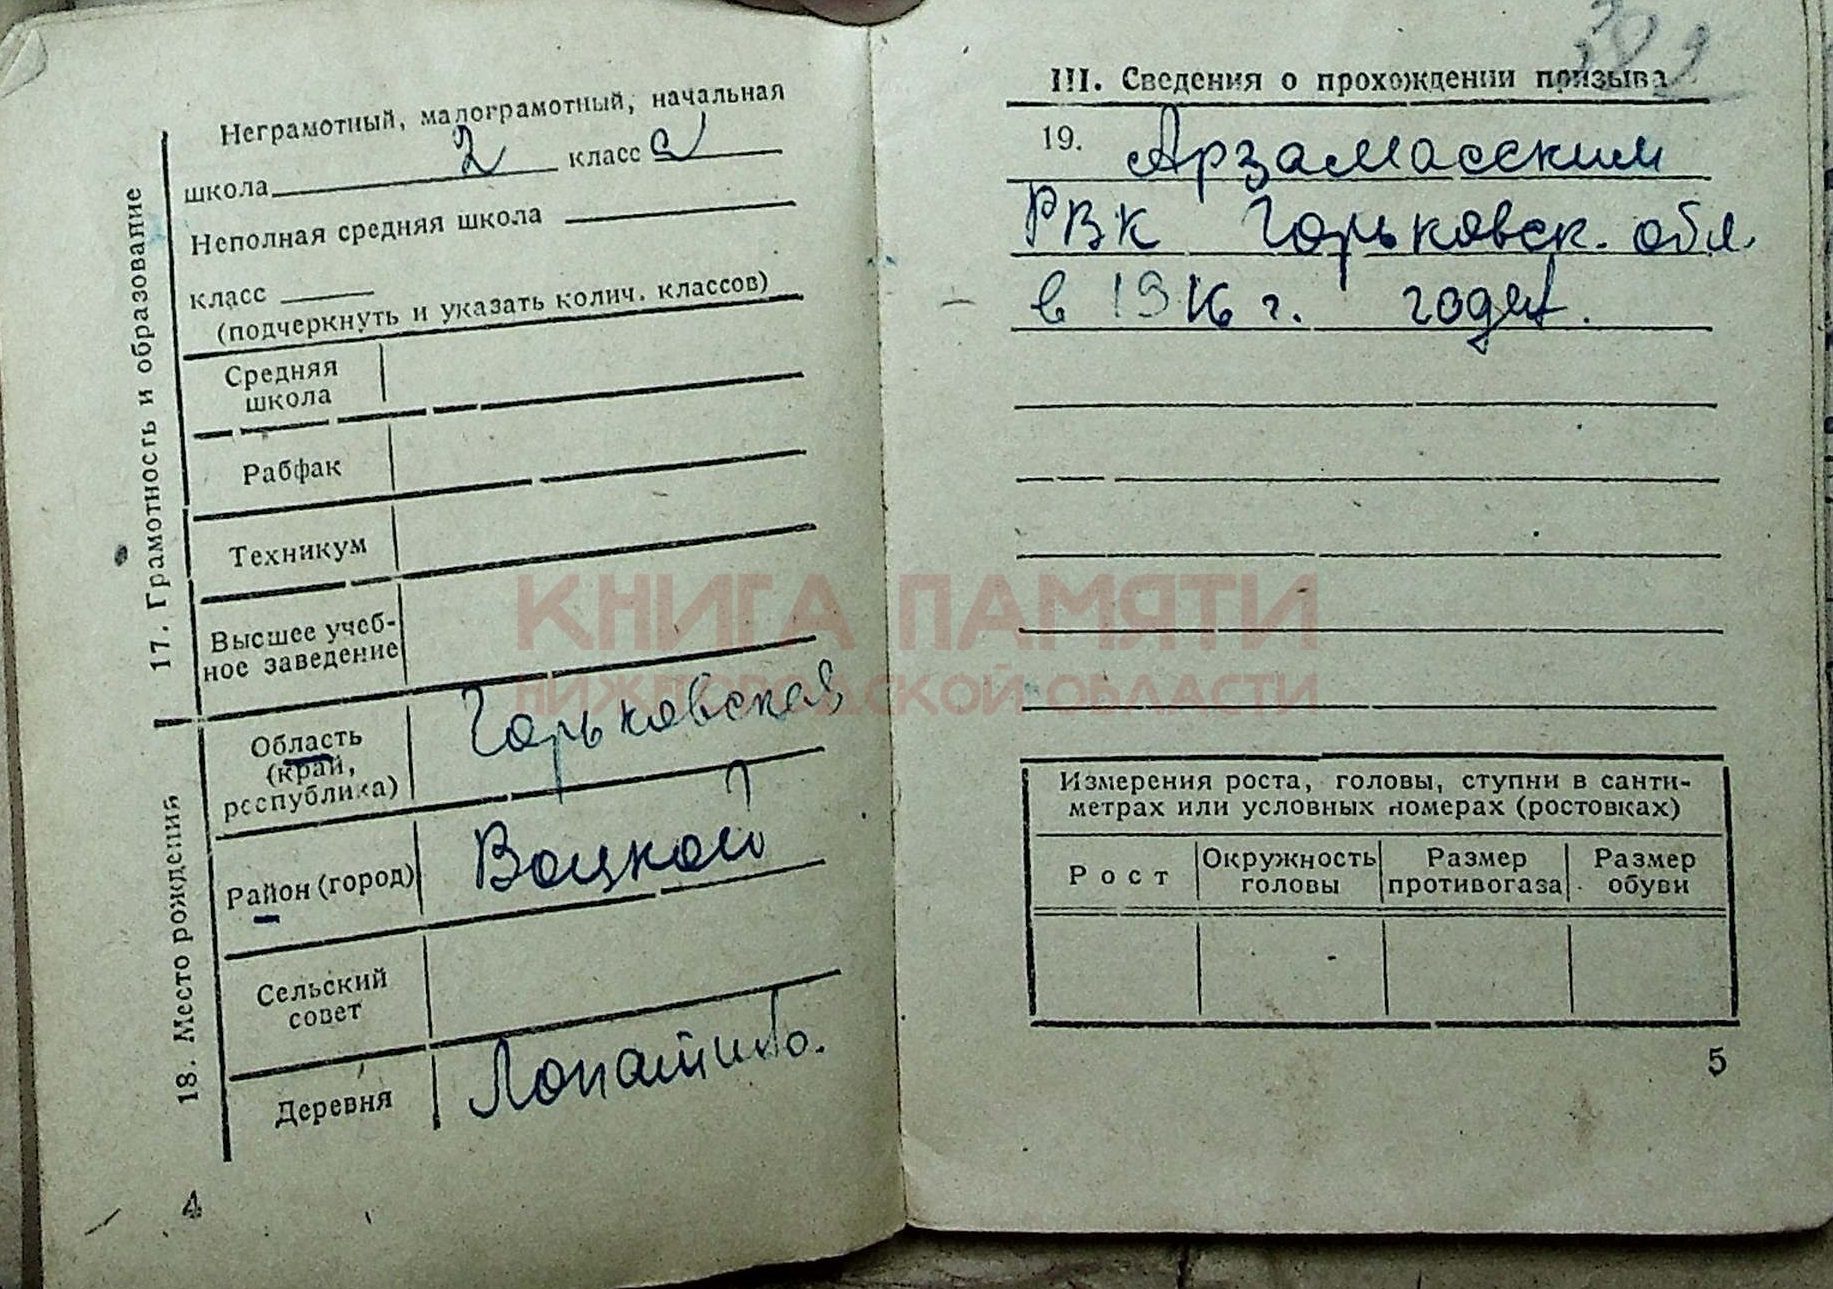 17. Грамотность и образование
Неграмотный, малограмотный, начальная
школа 2 класс а
Неполная средняя школа
класс
(подчеркнуть и указать колич. классов)
Средняя
школа
Рабфак
Техникум
Высшее учеб-
ное заведение
18. Место рождения
Область
(край,
республика)
Горьковская
Район (город)
Вацкой
Сельский
совет
Деревня
Лопатино.
4
III. Сведения о прохождении призыва
19. Арзамасским
РВК Горьковск. обл.
в 19 16 г. годет.
Измерения роста, головы, ступни в санти-
метрах или условных номерах (ростовках)
Рост
Окружность
головы
Размер
противогаза
Размер
обуви
5
КНИГА ПАМЯТИ
НИЖЕГОРОДСКОЙ ОБЛАСТИ